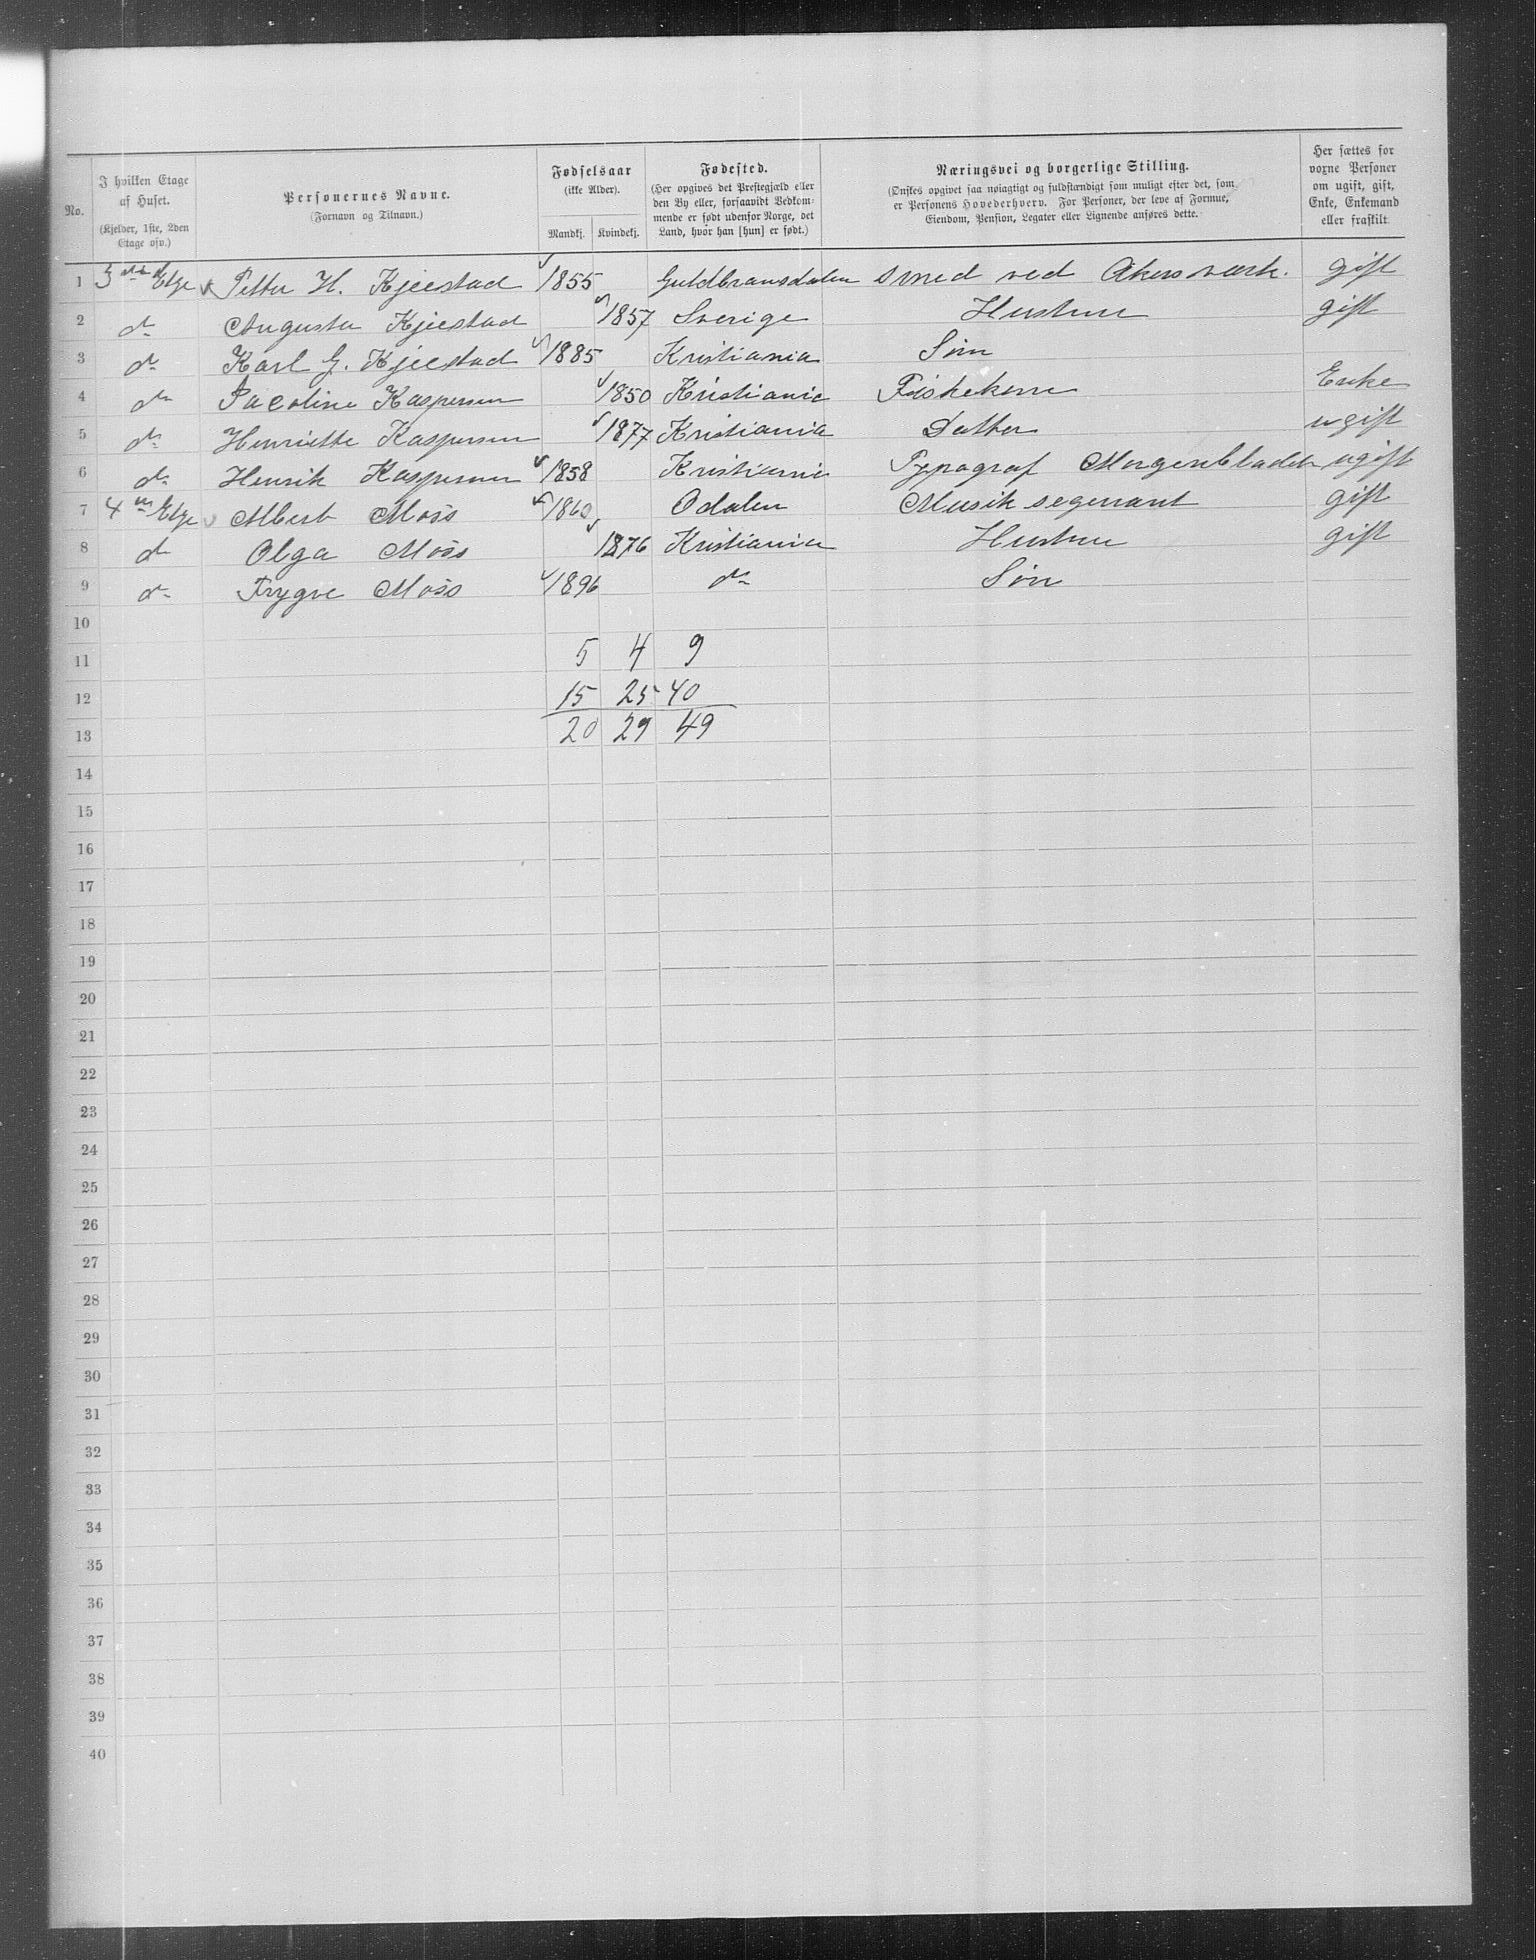 No.
I hvilken Etage af Huset.
(Kjelder, 1ste, 2den Etage osv.)
Personernes Navne.
(Fornavn og Tilnavn.)
Fødselsaar
(ikke Alder).
Mandkj. Kvindekj.
Fødested.
(Her opgives det Prestegjæld eller den By eller, forsaavidt Vedkommende er født udenfor Norge, det Land, hvor han [hun] er født.)
Næringsvei og borgerlige Stilling.
(Ønskes opgivet saa nøiagtigt og fuldstændigt som muligt efter det, som er Personens Hovederhverv. For Personer, der leve af Formue, Eiendom, Pension, Legater eller Lignende anføres dette.)
Her sættes for voxne Personer om ugift, gift, Enke, Enkemand eller fraskilt.
1 3die Etge Petter H. Kjeestad 1855 Guldbransdalen Smed ved Akers værk. gift
2 do Augusta Kjeestad 1857 Sverige Hustrue gift
3 do Karl G. Kjeestad 1885 Kristiania Søn
4 do Jacoline Kaspersen 1850 Kristiania Fiskekone Enke
5 do Henriette Kaspersen 1877 Kristiania Datter ugift
6 do Henrik Kaspersen 1858 Kristiania Typograf Morgenbladet ugift
7 4de Etge Albert Moss 1860 Odalen Musiksegerant gift
8 do Olga Moss 1876 Kristiania Hustrue gift
9 do Trygve Moss 1896 do Søn
10
11 5 4 9
12 15 25 40
13 20 29 49
14
15
16
17
18
19
20
21
22
23
24
25
26
27
28
29
30
31
32
33
34
35
36
37
38
39
40